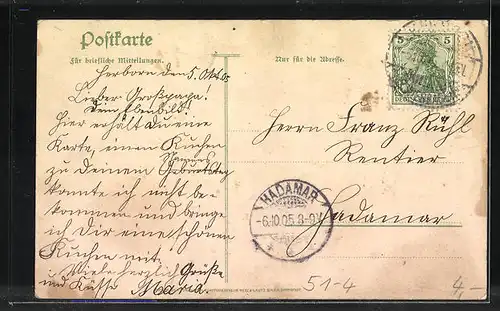 Postkarte
Für briefliche Mitteilungen.
Nur für die Adresse.
Herborn den 5. Okt. 05
Lieber Großpapa.
Dein Ebenbild!
Hier erhälst Du eine
Karte, einen Kuchen
zu Deinem Namens
Geburtstag
konnte ich nicht be-
kommen und bringe
ich Dir eine schönen
Kuchen mit.
Viele herzlich Grüße
und Küsse Maria.
5 5
Herrn Franz Rühl
Rentier
Hadamar
HADAMAR
-6.10.05.8-9V
51-4
4,-